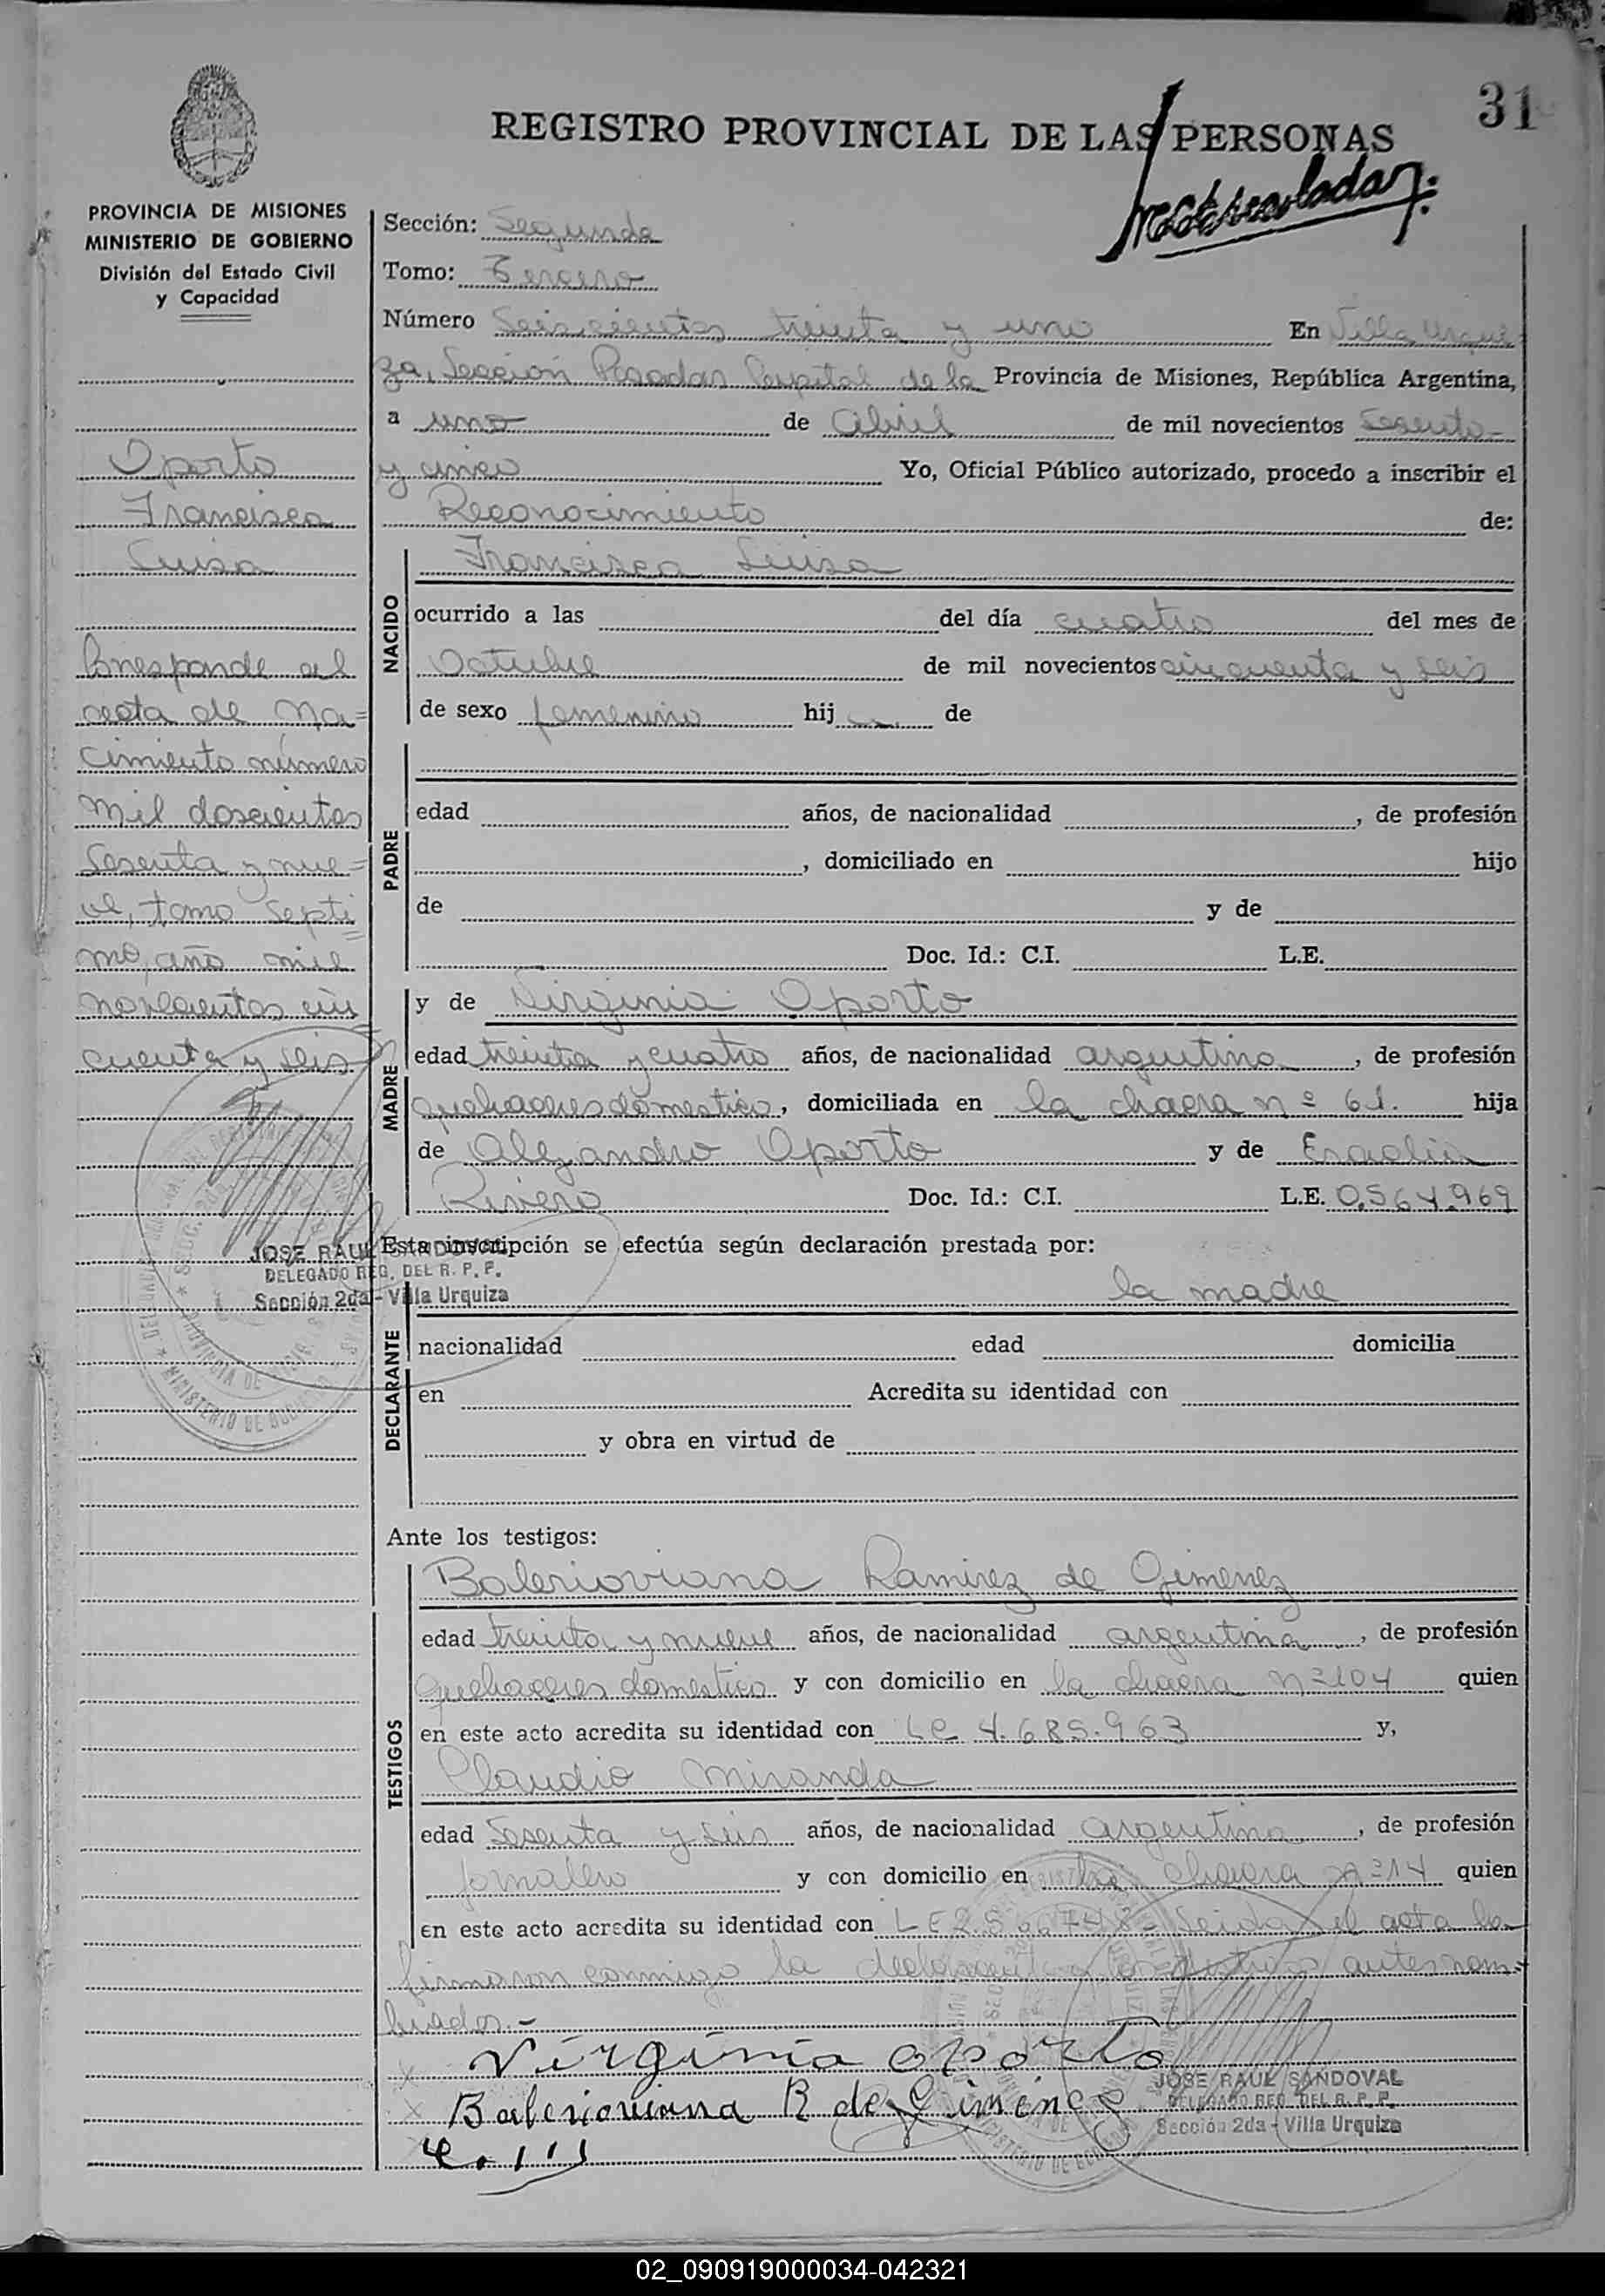 31
REGISTRO PROVINCIAL DE LAS PERSONAS
PROVINCIA DE MISIONES
MINISTERIO DE GOBIERNO
División del Estado Civil
y Capacidad
Oporto
Francisca
Luisa
Corresponde al
acta de Na=
cimiento número
mil doscientos
sesenta y nue=
ve, tomo septi
mo, año mil
novecientos cin
cuenta y seis
JOSE RAUL SANDOVAL
DELEGADO REG. DEL R. P. P.
Sección 2da - Villa Urquiza
Sección: Segunda
Tomo: Tercero
Número Seiscientos treinta y uno En Villa Urqui
za, Sección Posadas Capital de la Provincia de Misiones, República Argentina,
a uno de Abril de mil novecientos sesenta
y cinco Yo, Oficial Público autorizado, procedo a inscribir el
Reconocimiento de:
NACIDO
Francisca Luisa
ocurrido a las del día cuatro del mes de
Octubre de mil novecientos cincuenta y seis
de sexo femenino hij de
PADRE
edad años, de nacionalidad , de profesión
, domiciliado en hijo
de y de
Doc. Id.: C.I. L.E.
MADRE
y de Virginia Oporto
edad treinta y cuatro años, de nacionalidad argentina , de profesión
quehaceres domestico, domiciliada en la chacra nº 61. hija
de Alejandro Oporto y de
Rivero Doc. Id.: C.I. L.E. 0.564.969
Esta inscripción se efectúa según declaración prestada por:
DECLARANTE
la madre
nacionalidad edad domicilia
en Acredita su identidad con
y obra en virtud de
Ante los testigos:
TESTIGOS
Balerioviana Ramirez de Gimenez
edad treinta y nueve años, de nacionalidad argentina , de profesión
quehaceres domestico y con domicilio en la chacra nº 104 quien
en este acto acredita su identidad con LC 4.685.963 y,
Claudio Miranda
edad Sesenta y seis años, de nacionalidad argentina , de profesión
jornalero y con domicilio en la chacra nº 14 quien
en este acto acredita su identidad con LE Leida el acta la
firmaron conmigo la declarante y los testigos antes nom=
brados.-
x Virginia oporto
x Balerioviana R de Gimenez
JOSE RAUL SANDOVAL
DELEGADO REG. DEL R. P. P.
Sección 2da - Villa Urquiza
02_090919000034-042321